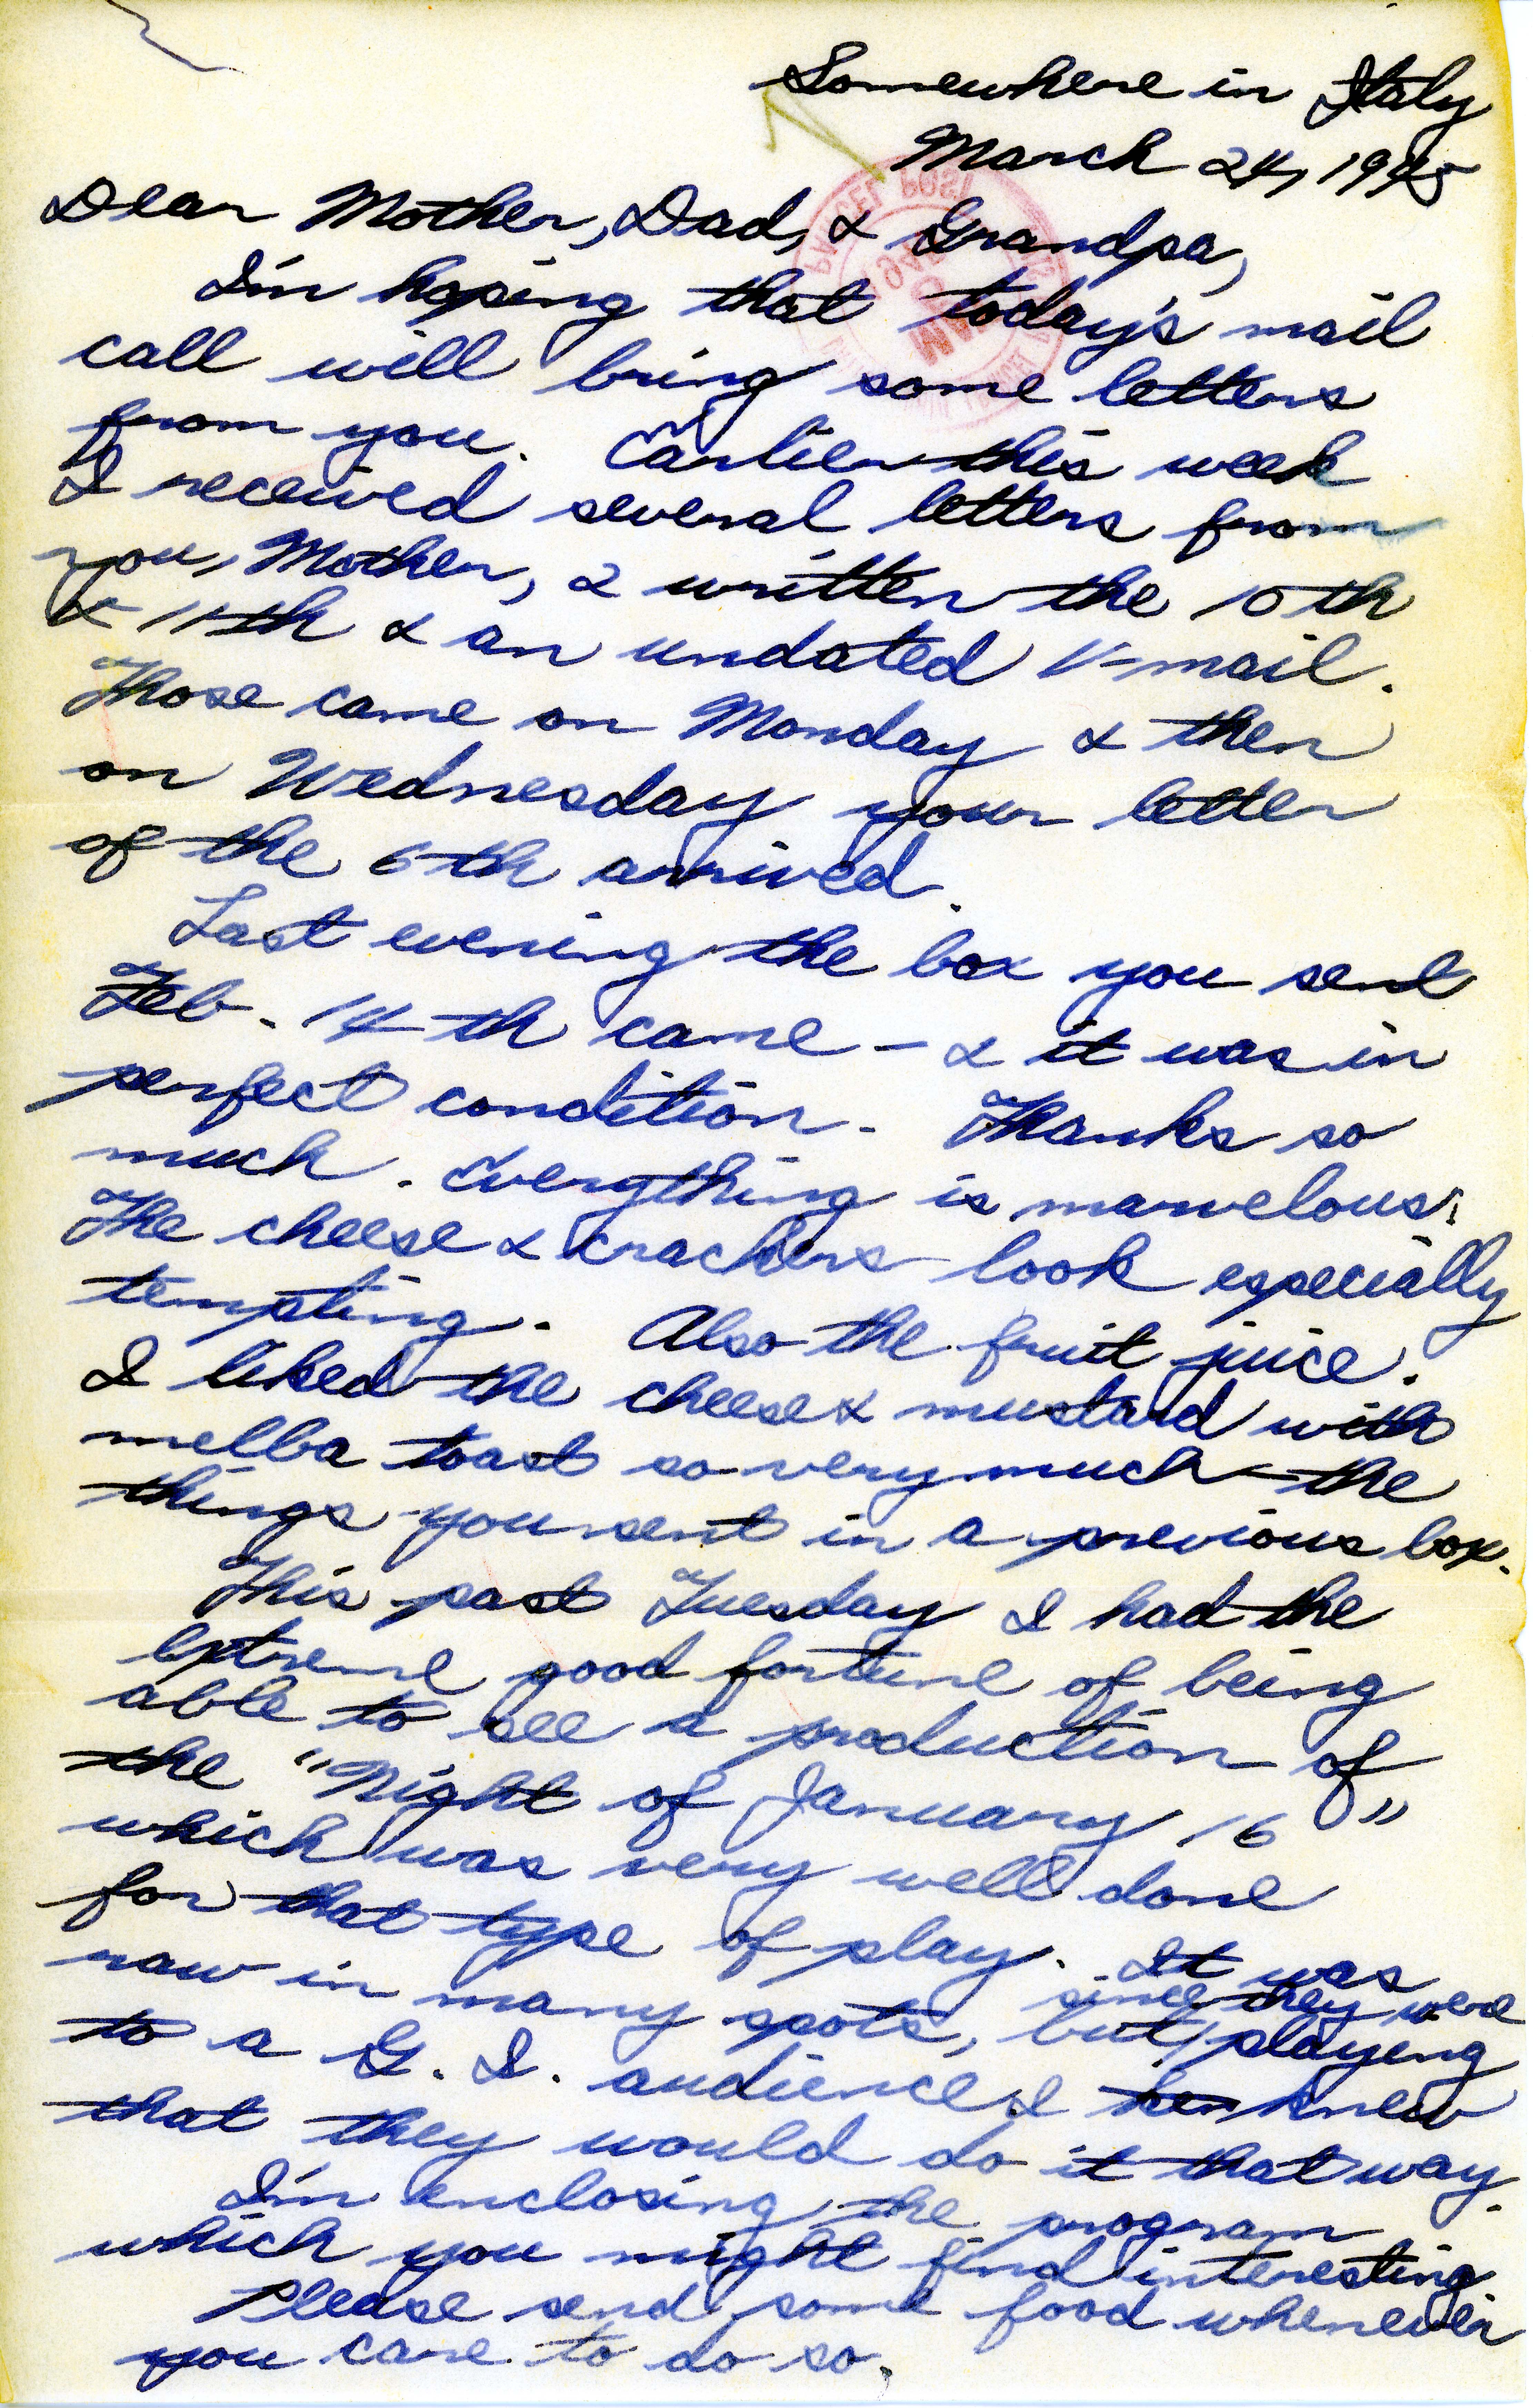 Somewhere in Italy
March 24, 1945
Dear Mother, Dad, & Grandpa,
I'm hoping that today's mail
call will bring some letters
from you. Earlier this week
I received several letters from
you, Mother, 2 written the 10th
& 11th & an undated V-mail.
Those came on Monday & then
on Wednesday your letter
of the 6th arrived.
Last evening the box you sent
Feb. 14th came - & it was in
perfect condition. Thanks so
much. Everything is marvelous.
The cheese & crackers look especially
tempting. Also the fruit juice.
I liked the cheese & mustard with
melba toast so very much - the
things you sent in a previous box.
This past Tuesday I had the
extreme good fortune of being
able to see a production of
the "Night of January 16"
which was very well done
for that type of play. It was
raw in many spots, but since they were playing
to a G. I. audience, I knew
that they would do it that way.
I'm enclosing the program
which you might find interesting.
Please send some food whenever
you care to do so.
PARCEL POST